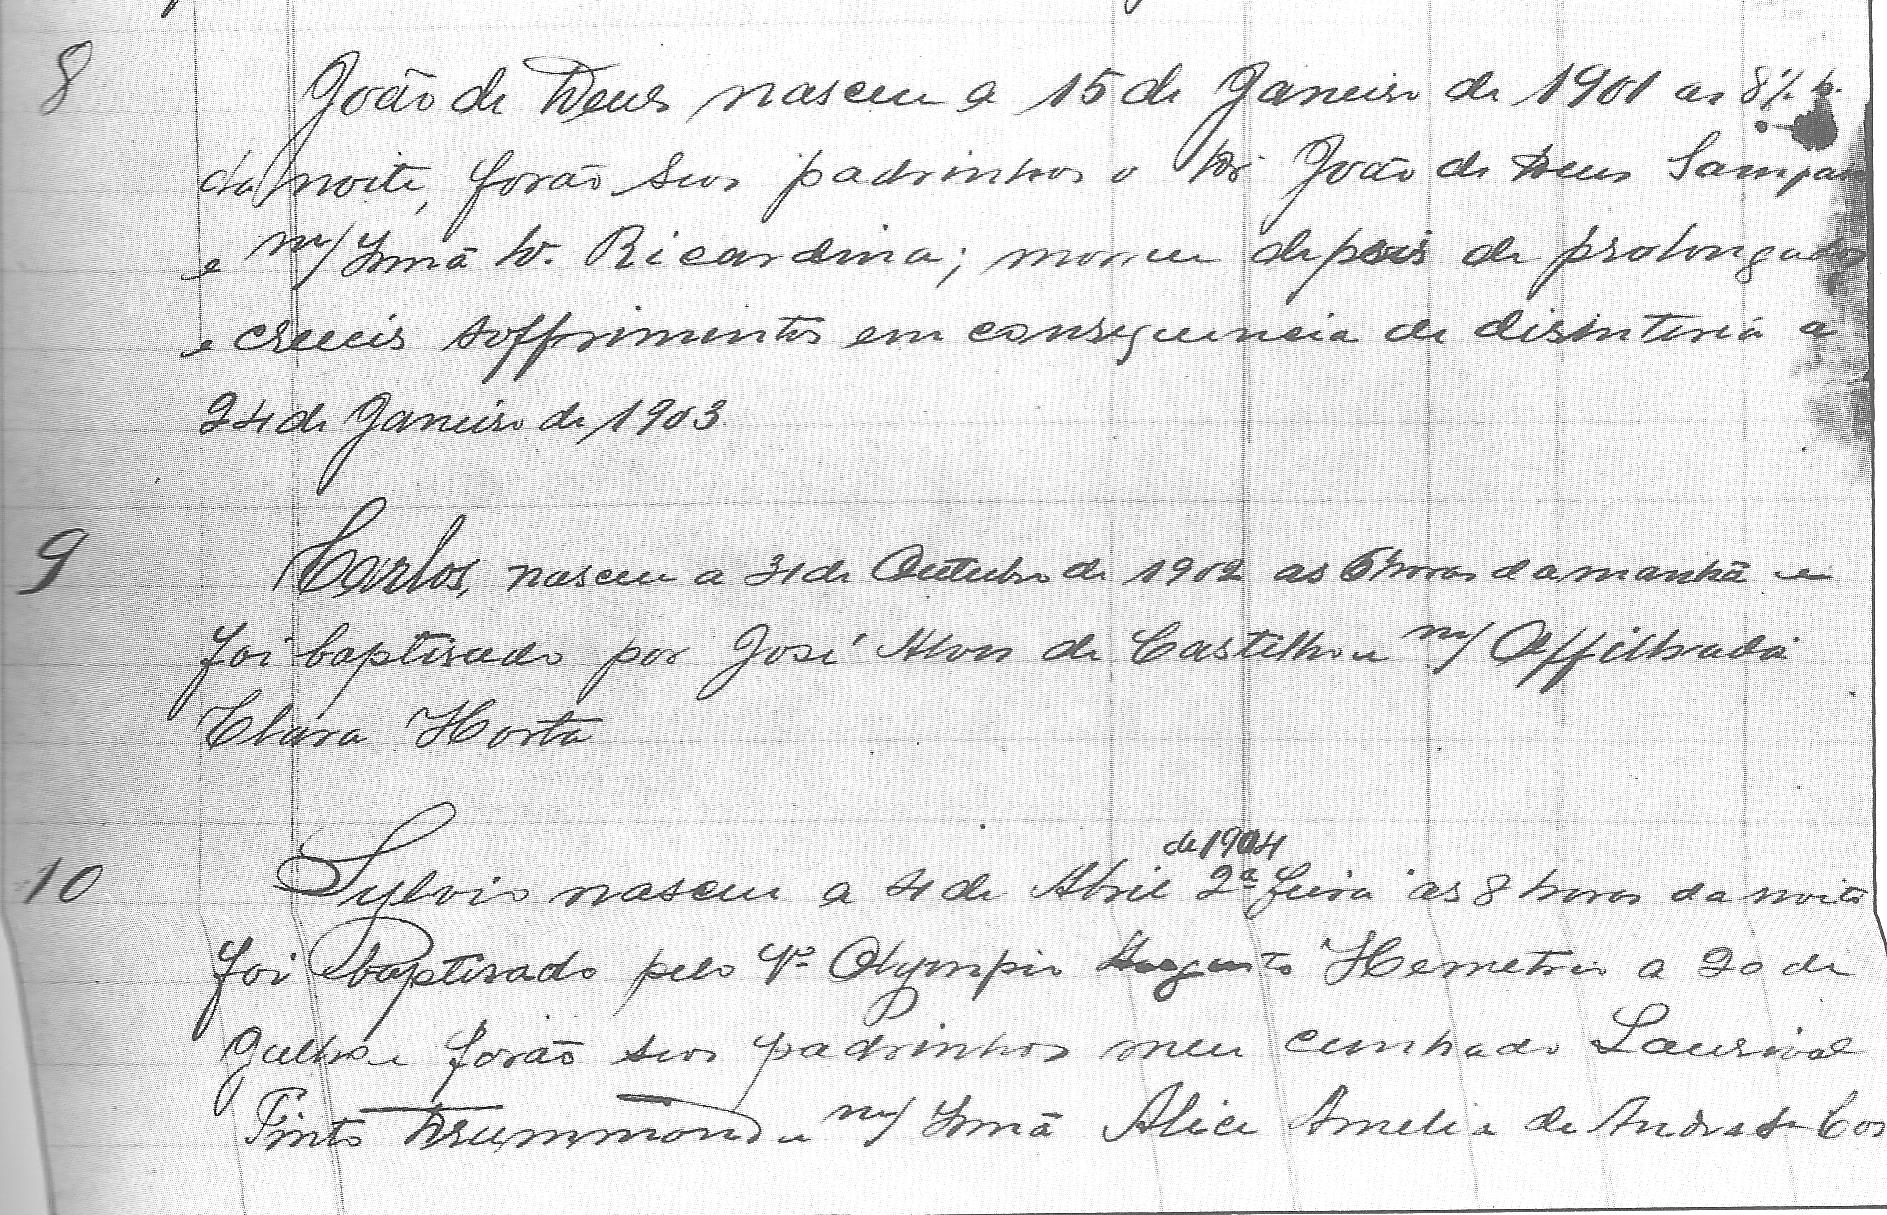 8 João de Deus nasceu a 15 de Janeiro de 1901 as 8½ h.
da noite, forão seos padrinhos o Dr João de Deus Sampaio
e m/ Irmã D. Ricardina; morreu depois de prolongados
e crueis soffrimentos em consequencia de disinteria a
24 de Janeiro de 1903
9 Carlos, nasceu a 31 de Outubro de 1902 as 6 horas da manhã e
foi baptisado por José Alves de Castilho e m/ Affilhada
Clara Horta
de 1904
10 Sylvio nasceu a 4 de Abril 2ª feira as 8 horas da noite
foi baptisado pelo Olympio Augusto Hemetrio a 20 de
Julho e forão seos padrinhos meu cunhado Lourival
Pinto Drummond e m/ Irmã Alice Amelia de Andrade Cos